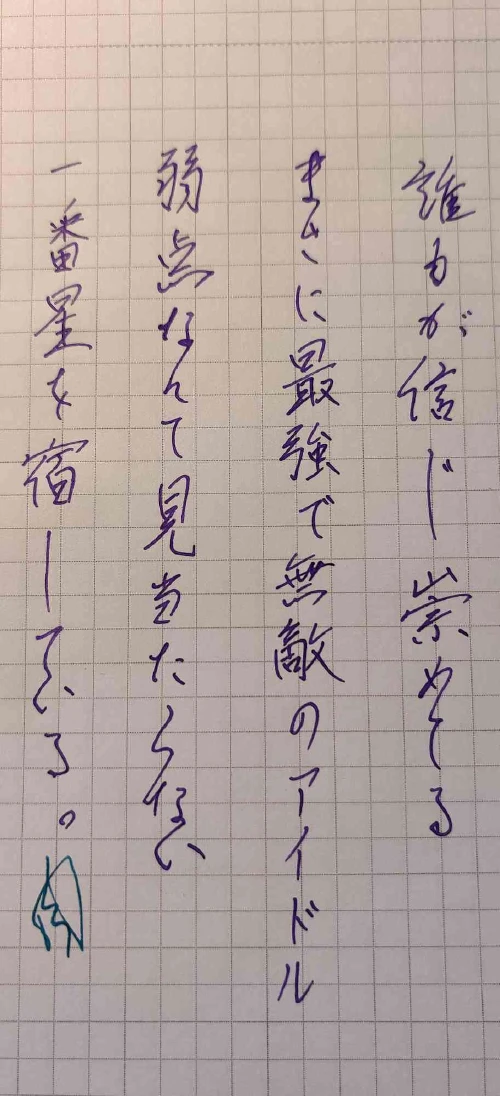 誰もが信じ崇めてる
まさに最強で無敵のアイドル
弱点なんて見当たらない
一番星を宿している。